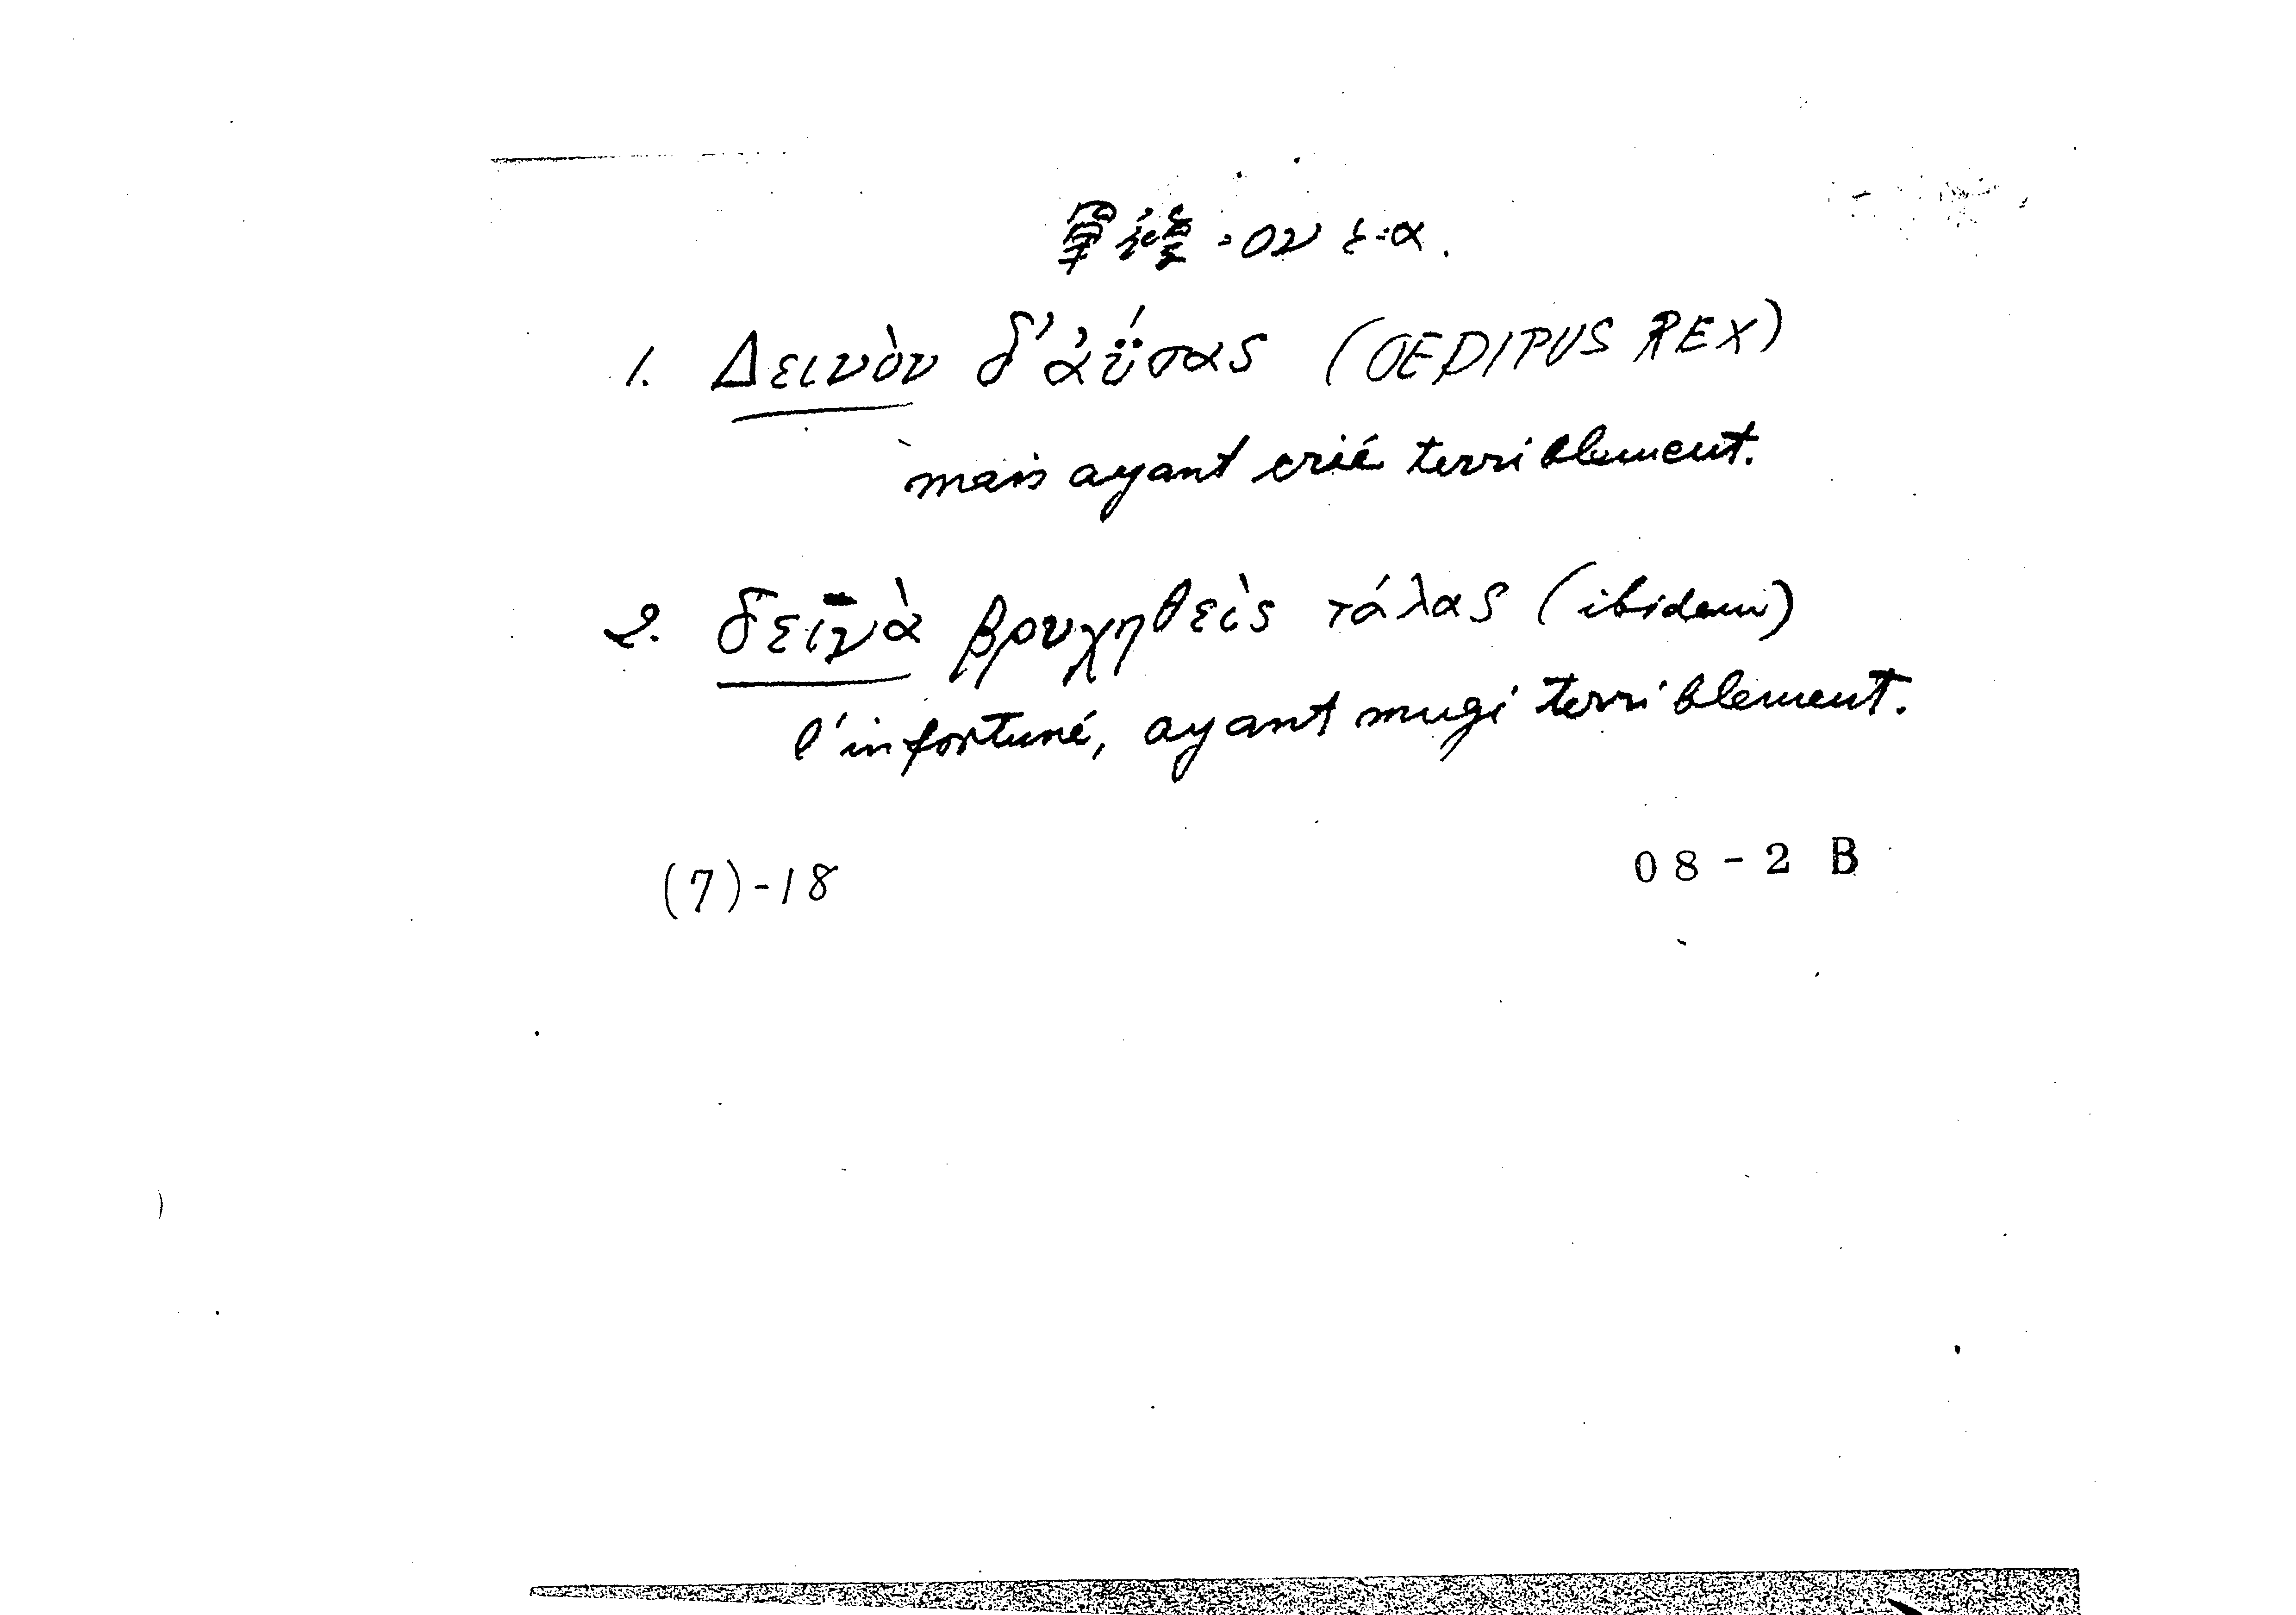 -ον と -α.
1. Δεινὸν δ' ἀΰσας (OEDIPUS REX)
mais ayant crié terriblement.
2. δεινὰ βρυχηθεὶς τάλας (ibidem)
l'infortuné, ayant mugi terriblement.
(7)-18
08-2 B